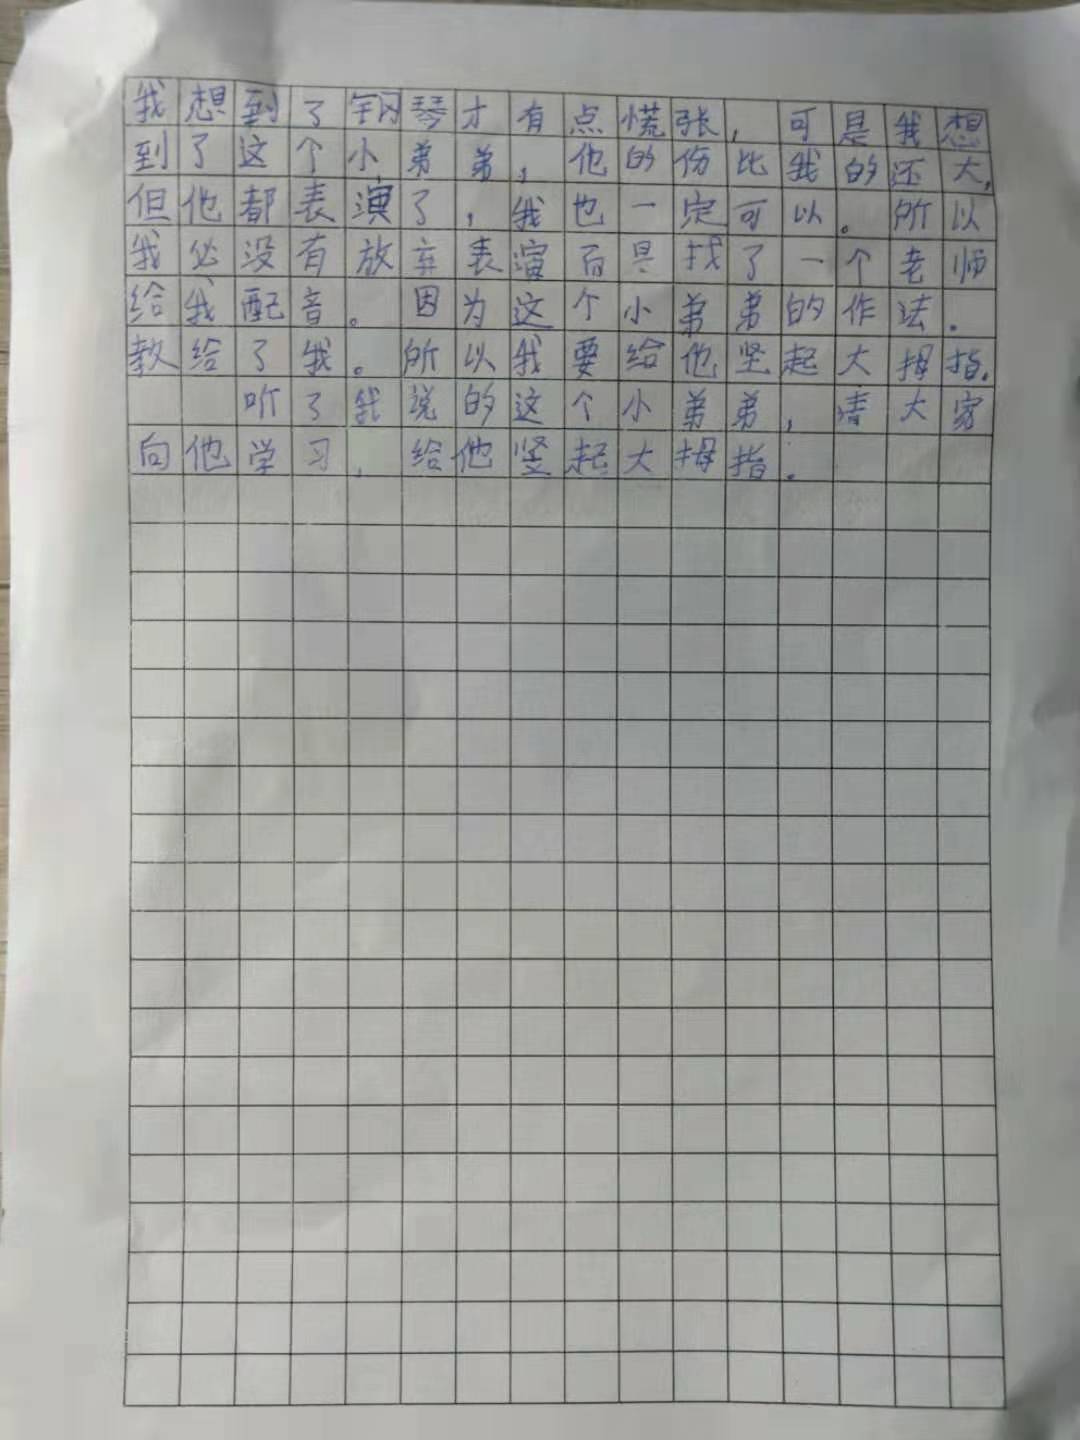 我想到了钢琴才有点慌张，可是我想
到了这个小弟弟，他的份比我的还大，
但他都表演了，我也一定可以。所以
我必没有放弃表演而是找了一个老师
给我配音。因为这个小弟弟的作法.
教给了我。所以我要给他坚起大拇指.
听了我说的这个小弟弟，请大家
向他学习，给他竖起大拇指.